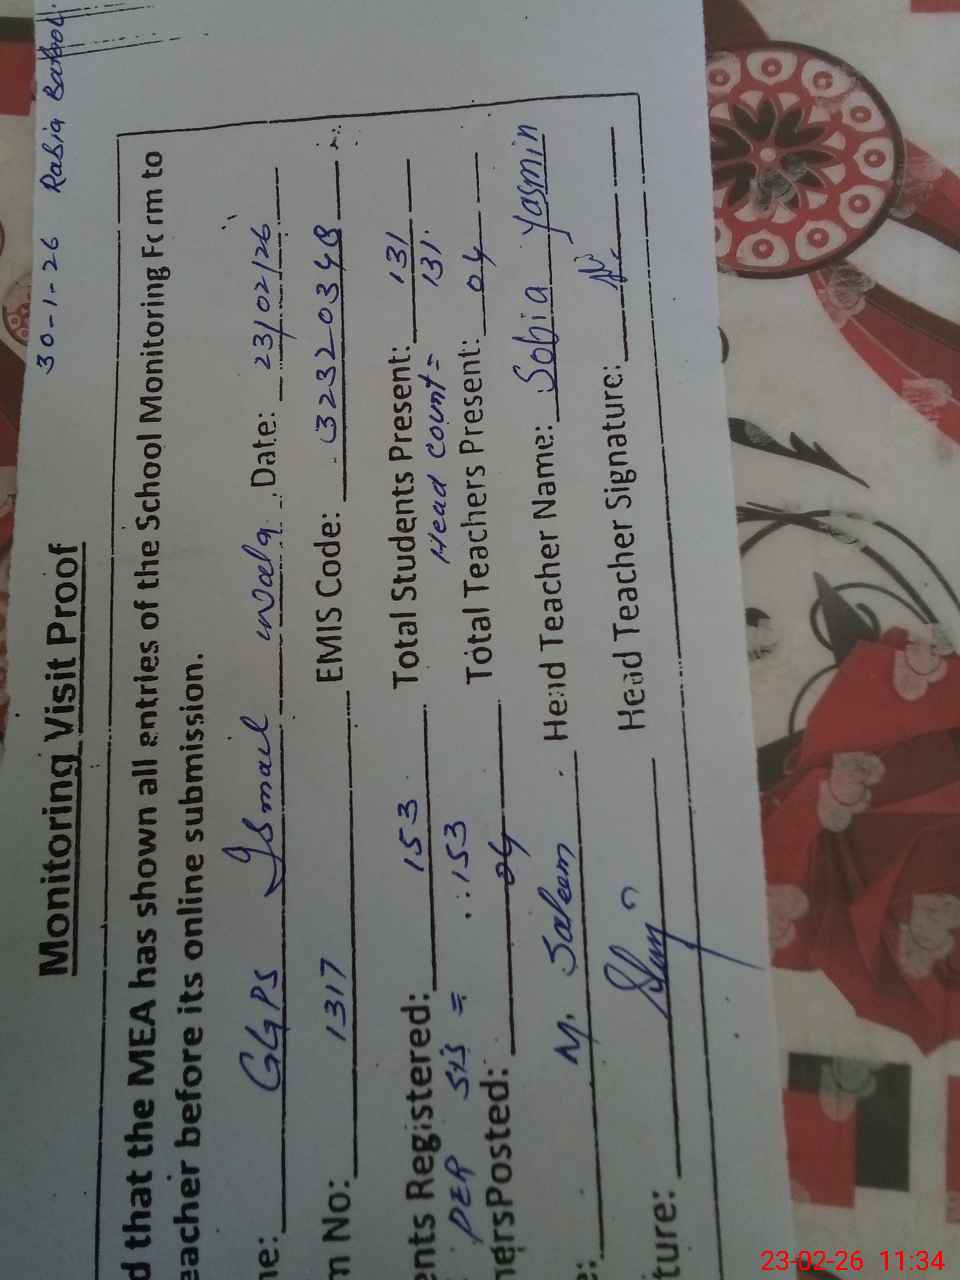 30-1-26 Rabia Batool
Monitoring Visit Proof
d that the MEA has shown all entries of the School Monitoring Form to
eacher before its online submission.
ne: GGPS Ismail wala Date: 23/02/26
m No: 1317 EMIS Code: 32320348
ents Registered: 153 Total Students Present: 131
PER SIS = 153 Head count = 131
hersPosted: 04 Total Teachers Present: 04
e: M. Saleem Head Teacher Name: Sobia Yasmin
ture: Head Teacher Signature:
23-02-26 11:34